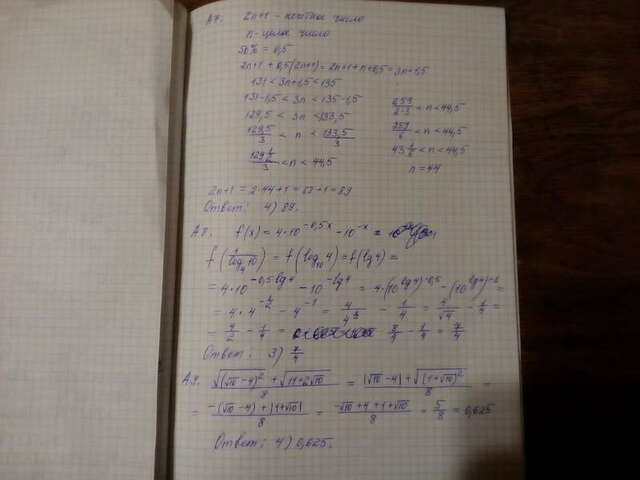 А7. 2n+1 - нечётное число
n - целое число
50% = 0,5
2n+1 + 0,5(2n+1) = 2n+1+n+0,5 = 3n+1,5
131 < 3n+1,5 < 135
131-1,5 < 3n < 135-1,5
129,5 < 3n < 133,5
129,5/3 < n < 133,5/3
129 1/2 / 3 < n < 44,5
259/2·3 < n < 44,5
259/6 < n < 44,5
43 1/6 < n < 44,5
n = 44
2n+1 = 2·44+1 = 88+1 = 89
Ответ: 4) 89.
А8. f(x) = 4·10^-0,5x - 10^-x =
f(1/log₄10) = f(log₁₀4) = f(lg4) =
= 4·10^-0,5lg4 - 10^-lg4 = 4·(10^lg4)^-0,5 - (10^lg4)^-1 =
= 4·4^-1/2 - 4^-1 = 4/4^1/2 - 1/4 = 4/√4 - 1/4 =
= 4/2 - 1/4 = 8/4 - 1/4 = 7/4
Ответ: 3) 7/4
А9. √(√10-4)² + √11+2√10 / 8 = |√10-4| + √(1+√10)² / 8 =
= -(√10-4) + |1+√10| / 8 = -√10+4+1+√10 / 8 = 5/8 = 0,625
Ответ: 4) 0,625.